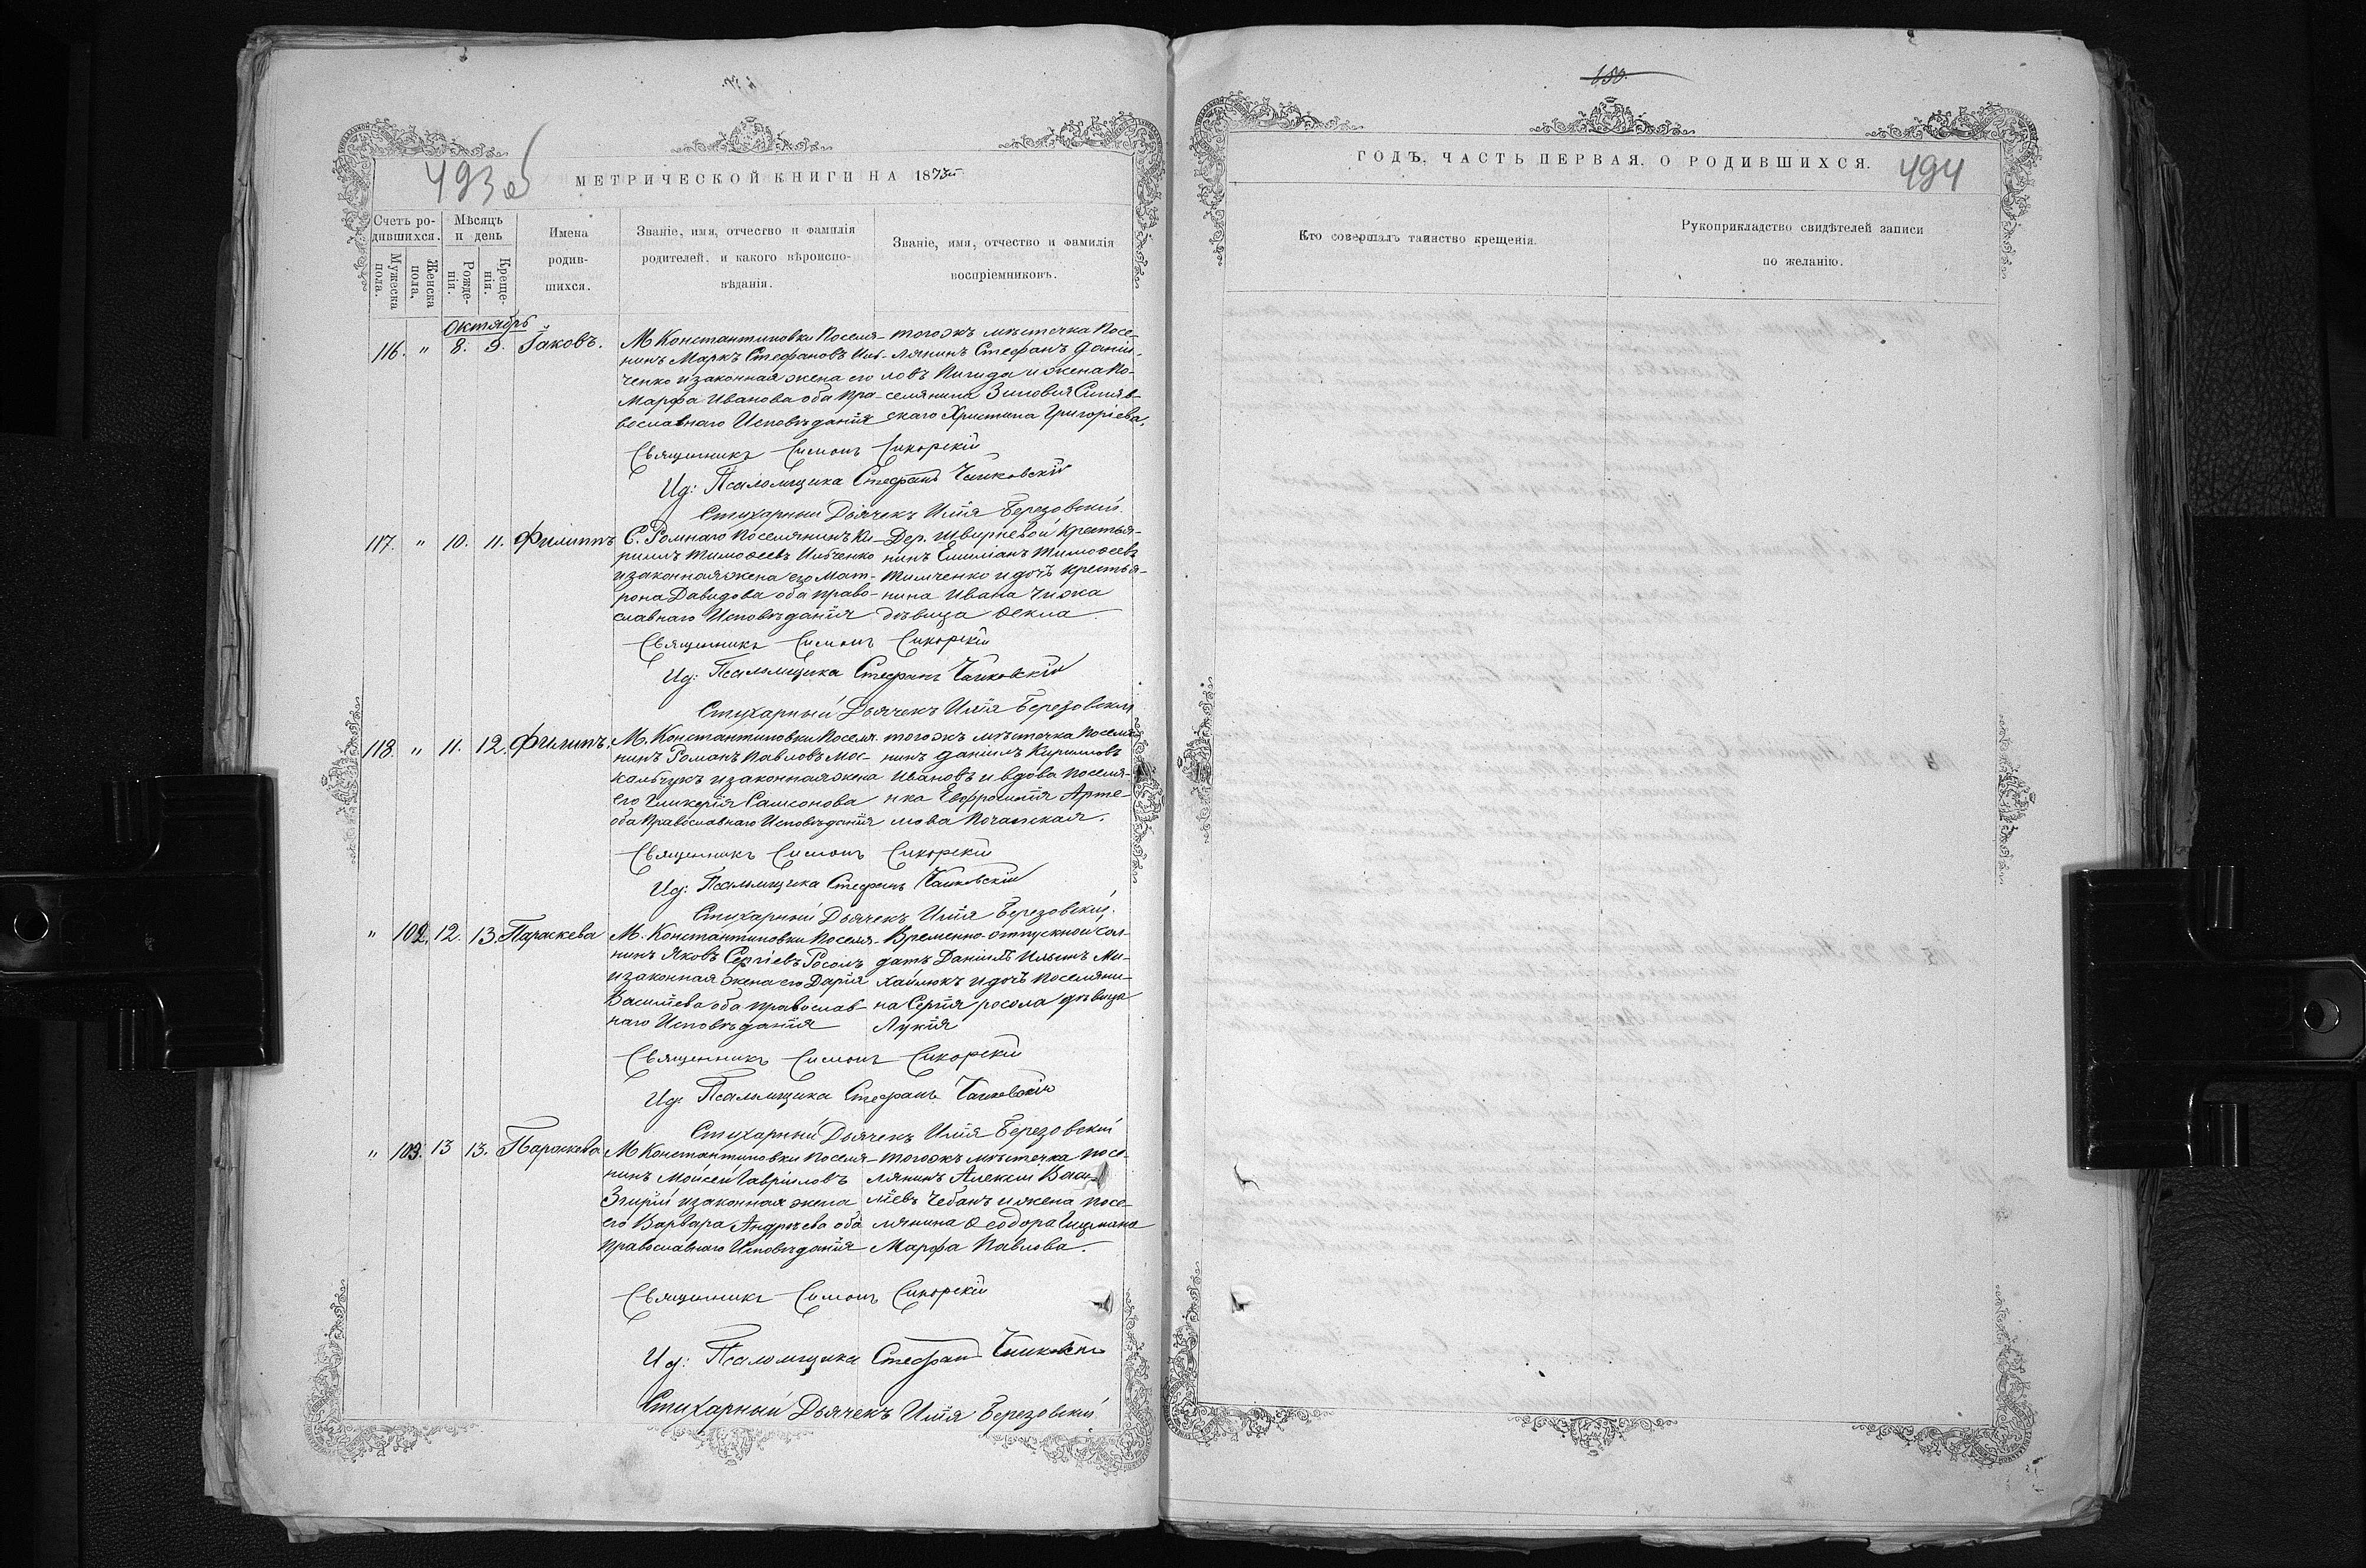 493 об
МЕТРИЧЕСКОЙ КНИГИ НА 1873й
Счетъ ро-
дившихся.
Мужеска
пола.
Женска
пола.
Мѣсяцъ
и день
Рожде-
нія.
Креще-
нія.
Имена
родив-
шихся.
Званіе, имя, отчество и фамилія
родителей, и какого вѣроиспо-
вѣданія.
Званіе, имя, отчество и фамилія
воспріемниковъ.
Октябрь
116. " 8. 9. Іаковъ.
М Константиновки Поселя-
нинъ Маркъ Стефановъ Иль-
ченко и законная жена его
Марфа Иванова оба пра-
вославнаго Исповѣданія
тогожъ мѣстечка Посе-
лянинъ Стефанъ Даніи-
ловъ и жена По-
селянина Зиновія Синяв-
скаго Христина Григоріева.
Священникъ Симонъ Сикорскій
Ид: Псаломщика Стефанъ Чайковскій
Стихарный Дьячекъ Илія Березовскій.
117. " 10. 11. Филиппъ
С. Ромнаго Поселянинъ Ки-
риллъ Тимоѳеевъ Ильченко
и законная жена его Мат-
рона Давидова оба право-
славнаго Исповѣданія
Дер. Швырневой Крестья-
нинъ Емиліанъ Тимоѳеевъ
Тимченко и дочь крестья-
нина Ивана Чижа
дѣвица Ѳекла.
Священникъ Симонъ Сикорскій
Ид: Псаломщика Стефанъ Чайковскій
Стихарный Дьячекъ Илія Березовскій
118. " 11. 12. Филипъ.
М. Константиновки Поселя-
нинъ Романъ Павловъ Мос-
кальчукъ и законная жена
его Гликерія Самсонова
оба Православнаго Исповѣданія
тогожъ мѣстечка Поселя-
нинъ Даніилъ Кирилловъ
Ивановъ и вдова поселя-
нка Евфросинія Арте-
мова
Священникъ Симонъ Сикорскій
Ид: Псаломщика Стефанъ Чайковскій
Стихарный Дьячекъ Илія Березовскій.
" 102. 12. 13. Параскева
М. Константиновки Поселя-
нинъ Яковъ Сергіевъ Росолъ
и законная жена его Дарія
Василіева оба православ-
наго Исповѣданія
Временно-отпускной сол-
датъ Даніилъ Ильинъ Ми-
хайлюкъ и дочь поселяни-
на Сергія росола дѣвица
Лукія
Священникъ Симонъ Сикорскій
Ид: Псаломщика Стефанъ Чайковскій
Стихарный Дьячекъ Илія Березовскій
" 103. 13 13. Параскева
М Константиновки Поселя-
нинъ Моисей Гавріиловъ
Згирій и законная жена
его Варвара Андреева оба
православнаго Исповѣданія
тогожъ мѣстечка посе-
лянинъ Алексій Васи-
ліевъ Чебанъ и жена посе-
лянина Ѳеодора
Марфа Павлова.
Священникъ Симонъ Сикорскій
Ид: Псаломщика Стефанъ Чайковскій
Стихарный Дьячекъ Илія Березовскій
150.
ГОДЪ, ЧАСТЬ ПЕРВАЯ. О РОДИВШИХСЯ.
494
Кто совершалъ таинство крещенія.
Рукоприкладство свидѣтелей записи
по желанію.